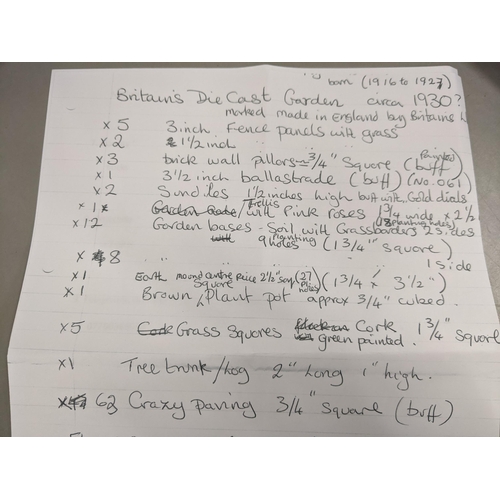 born (1916 to 1927)
Britain's Die Cast Garden circa 1930?
marked made in England by Britains L
x5 3 inch Fence panels with grass
x2 1 1/2 inch
x3 brick wall pillors - 3/4" Square (Painted buff)
x1 3 1/2 inch ballastrade (buff) (No. 061)
x2 Sundiles 1 1/2 inches high buff with Gold dials
x1 Trellis with Pink roses 1 3/4 wide x 2 1/2
x12 Garden bases - Soil with Grass borders 2 sides
9 planting holes (1 3/4" square) (18 planting holes)
x 8 " " " 1 side
x1 Earth mound centre piece 2 1/2" sq (27) holes (1 3/4 x 3 1/2")
x1 Brown Square Plant pot approx 3/4" cubed.
x5 Grass Squares Cork 1 3/4" square
green painted.
x1 Tree trunk/Log 2" Long 1" high.
x 62 Crazy Paving 3/4" Square (buff)